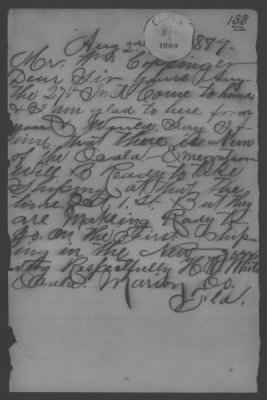 138
Aug 2 1889.
Mr. Wm Coppinger
Dear Sir Yours Aug
the 27th Inst Come to hand
& I am glad to here from
you I Would Say
time that there is Num
of the Ocala Emigration
Will B Ready to take
Shiping at that the
time Oct 1. St. But they
are Makeing Ready to
Go. on the First Ship
ing in the New
Respectfully
Ocala Marion Co.
Fla.